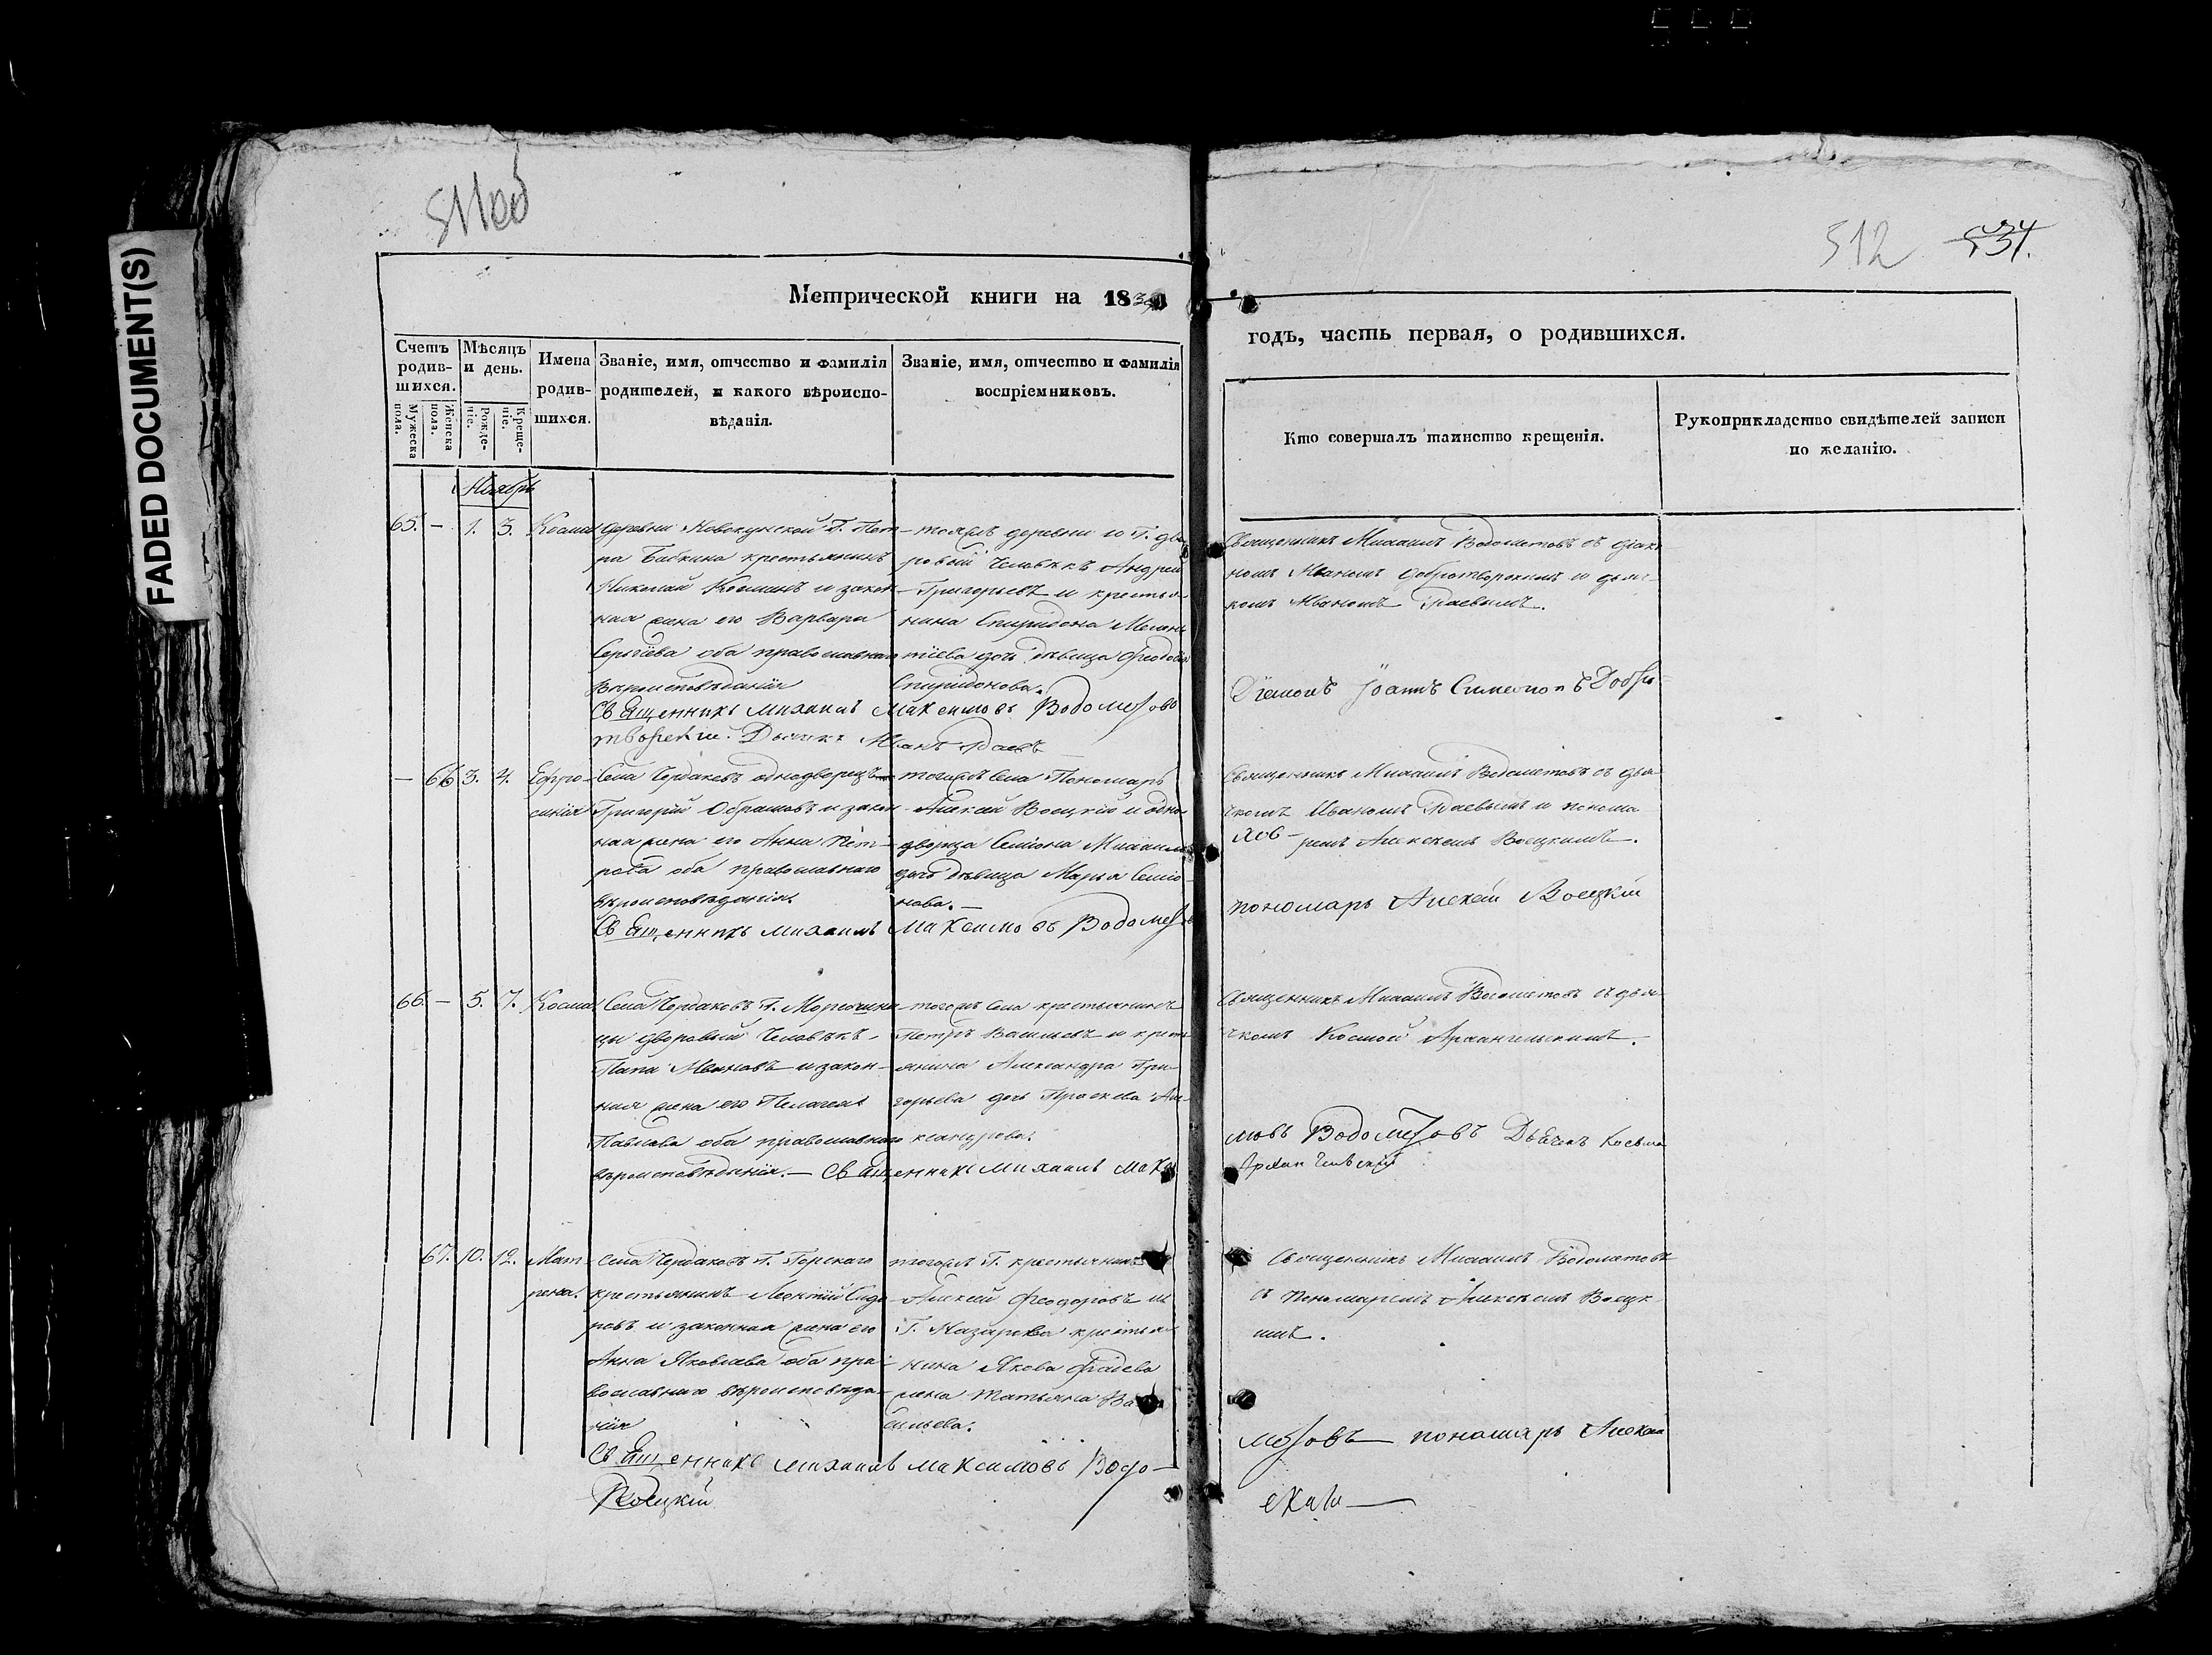 FADED DOCUMENT(S)
511об
512 534.
Метрической книги на 183
годъ, часть первая, о родившихся.
Счетъ родив-шихся.
Мужеска пола.
Женска пола.
Мѣсяцъ и день.
Рожде-ніе.
Креще-ніе.
Имена родив-шихся.
Званіе, имя, отчество и фамилія
родителей, и какого вѣроиспо-
вѣданія.
Званіе, имя, отчество и фамилія
воспріемниковъ.
Кто совершалъ таинство крещенія.
Рукоприкладство свидѣтелей записи
по желанію.
Ноябрь
65. — 1. 3. Косма
деревни Г. Пет-
ра Бабкина крестьянинъ
Николай Косминъ и закон-
ная жена его Варвара
Сергіева оба православнаго
вѣроисповѣданія
тояжъ деревни Г. дво
ровой человѣкъ Андрей
Григорьевъ и крестья
нина Спиридона Мелен
тіева дочь дѣвица Феодосія
Спиридонова.
Священникъ Михаилъ Водометовъ съ діако
номъ Иваномъ Добротворскимъ и дьяч-
комъ Иваномъ Раевымъ.
Священникъ Михаилъ Максимовъ Водометовъ
Діаконъ Іоаннъ Симеоновъ Добро-
творскій. Дьячкъ Иванъ Раевъ
— 66 3. 4. Ефро-
синія
Села Чердаковъ однодворецъ
Григорій Образцовъ и закон
ная жена его Анна Пет-
рова оба православнаго
вѣроисповѣданія.
тогожъ села Пономарь
Алексѣй Воецкій и одно
дворца Семіона Михаилова
дочь дѣвица Марья Семіо
нова. —
Священникъ Михаилъ Водометовъ съ дья
чкомъ Иваномъ Раевымъ и понома
ремъ Алексѣемъ Воецкимъ.
Священникъ Михаилъ Максимовъ Водомет
овъ —
пономарь Алексѣй Воецкій
66. — 5. 7. Косма
Села Чердаковъ Г.
цы дворовый человѣкъ
Ивановъ и закон-
ная жена его Пелагея
Павлова оба православнаго
вѣроисповѣданія. —
тогожъ села крестьянинъ
Петръ Васильевъ и крест
янина Александра Гри-
горьева дочь Але-
ксандрова.
Священникъ Михаилъ Водометовъ съ дья
чкомъ Космой Архангельскимъ.
Священникъ Михаилъ Макси
мовъ Водометовъ Дьячекъ Косьма
Архангельскій
67. 10. 12. Мат-
рена.
Села Чердаковъ Г. Горскаго
крестьянинъ Леонтій Сидо
ровъ и законная жена его
Анна Яковлева оба пра-
вославнаго вѣроисповѣда-
нія
тогожъ Г. крестьянинъ
Алексѣй Феодоровъ и
Г. Назарова крестья
нина Якова Фадеева
жена Татьяна Ва
сильева.
Священникъ Михаилъ Водометовъ
съ пономаремъ Алексѣемъ Воецк
имъ.
Священникъ Михаилъ Максимовъ Водо —
метовъ пономарь Алексей
Воецкій